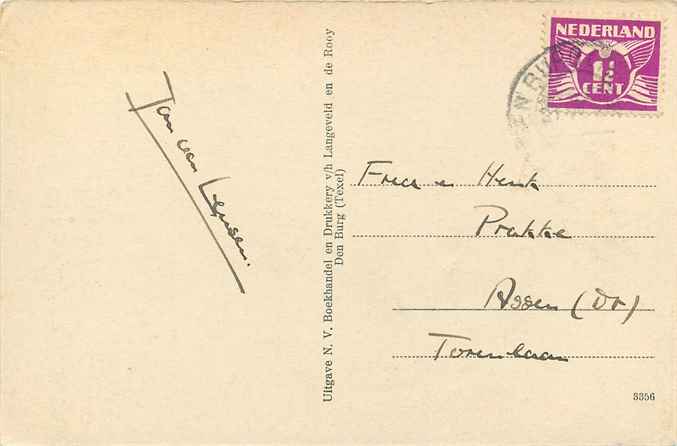 NEDERLAND
1½
CENT
N BUR
Jan van Leeuwen.
Uitgave N. V. Boekhandel en Drukkery v/h Langeveld en de Rooy
Den Burg (Texel)
Fred en Henk
Prakke
Assen (Dr)
Torenlaan
3356